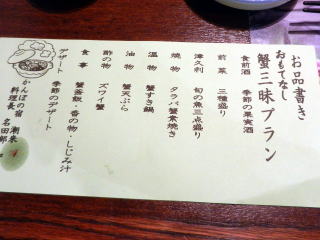 お品書き
おもてなし
蟹三昧プラン
食前酒 季節の果実酒
前菜 三種盛り
津久利 旬の魚三点盛り
焼物 タラバ蟹素焼き
温物 蟹すき鍋
油物 蟹天ぷら
酢の物 ズワイ蟹
食事 蟹釜飯・香の物・しじみ汁
デザート 季節のデザート
かんぽの宿 潮来
料理長 名田部